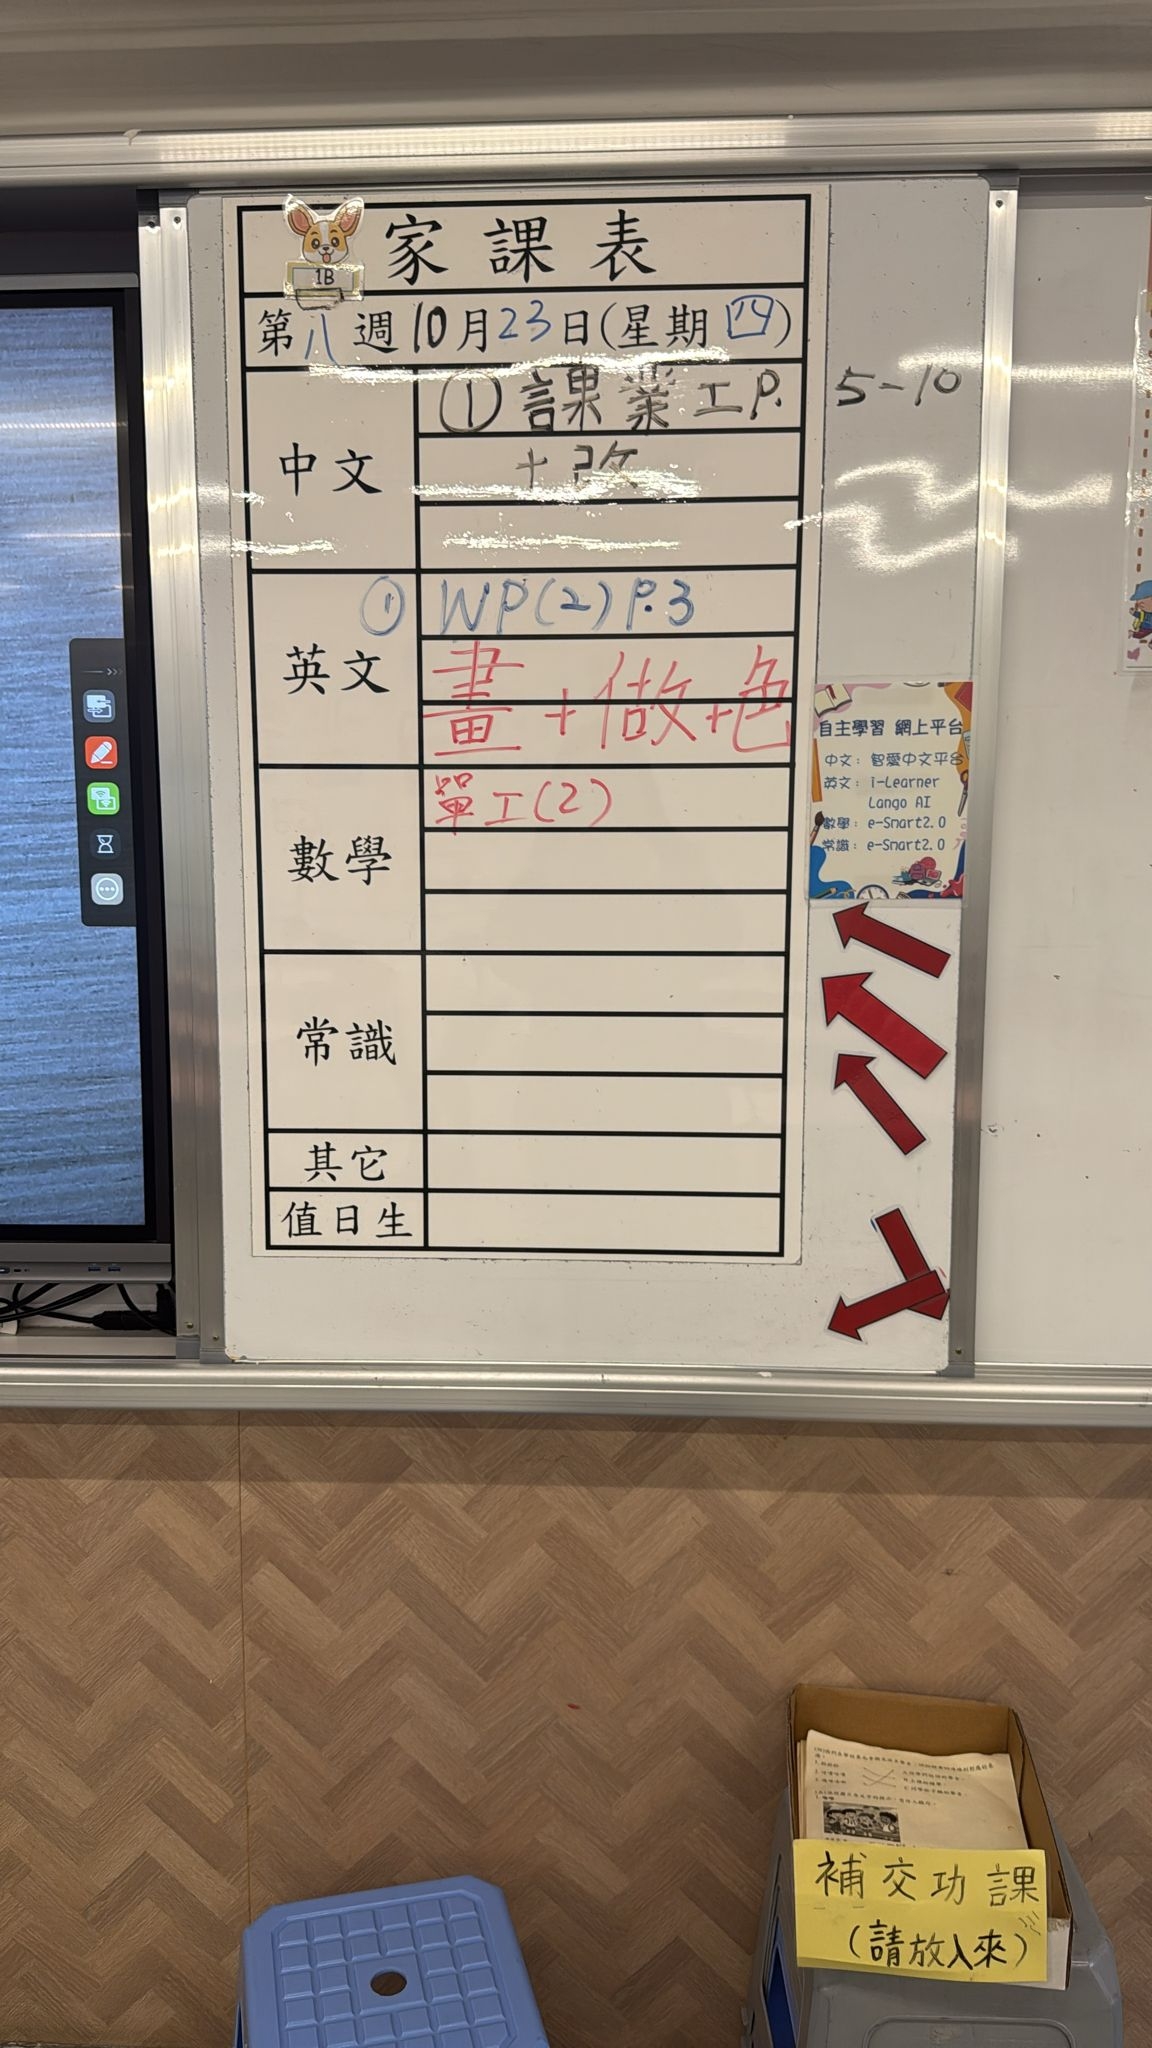 家課表
1B
第八週10月23日(星期四)
中文
① 課業工P. 5-10
+改
英文
① WP(2) P.3
畫+做+色
數學
單工(2)
常識
其它
值日生
自主學習 網上平台
中文：智愛中文平台
英文：i-Learner
Lango AI
數學：e-Smart2.0
常識：e-Smart2.0
補交功課
(請放入來)